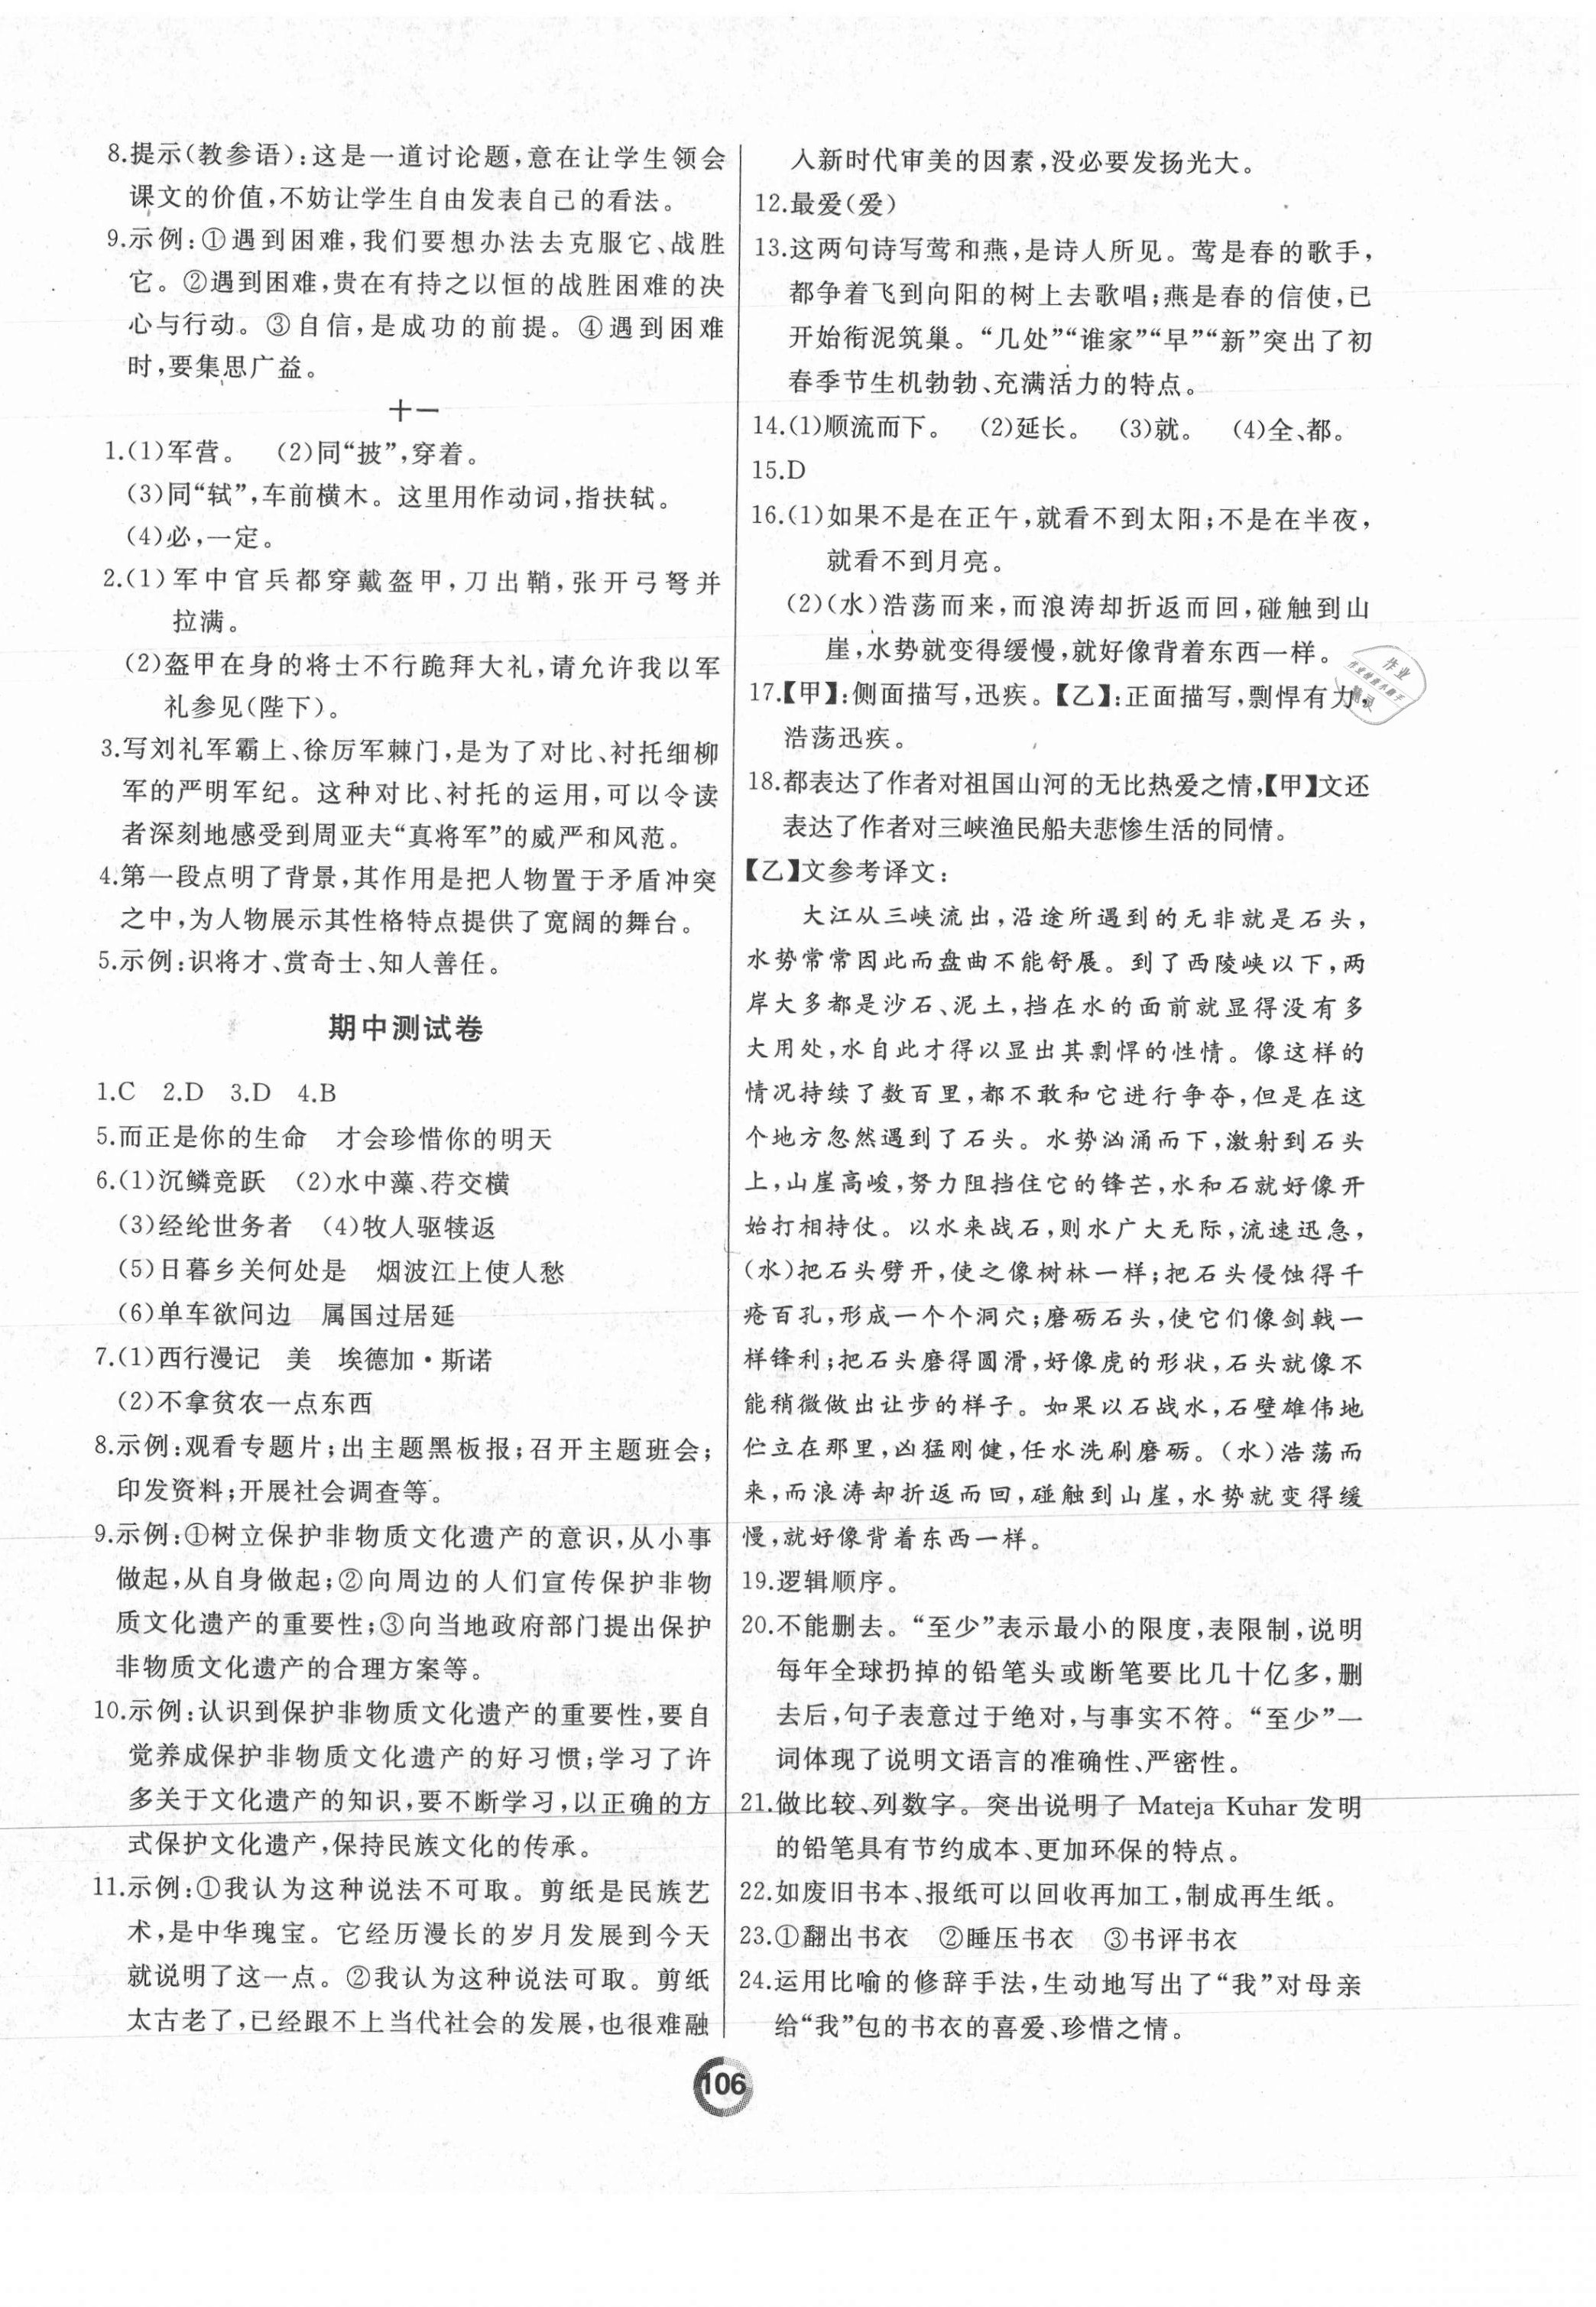 8.提示(教参语):这是一道讨论题,意在让学生领会
课文的价值,不妨让学生自由发表自己的看法。
9.示例:①遇到困难,我们要想办法去克服它、战胜
它。②遇到困难,贵在有持之以恒的战胜困难的决
心与行动。③自信,是成功的前提。④遇到困难
时,要集思广益。
十一
1.(1)军营。 (2)同“披”,穿着。
(3)同“轼”,车前横木。这里用作动词,指扶轼。
(4)必,一定。
2.(1)军中官兵都穿戴盔甲,刀出鞘,张开弓弩并
拉满。
(2)盔甲在身的将士不行跪拜大礼,请允许我以军
礼参见(陛下)。
3.写刘礼军霸上、徐厉军棘门,是为了对比、衬托细柳
军的严明军纪。这种对比、衬托的运用,可以令读
者深刻地感受到周亚夫“真将军”的威严和风范。
4.第一段点明了背景,其作用是把人物置于矛盾冲突
之中,为人物展示其性格特点提供了宽阔的舞台。
5.示例:识将才、赏奇士、知人善任。
期中测试卷
1.C 2.D 3.D 4.B
5.而正是你的生命 才会珍惜你的明天
6.(1)沉鳞竞跃 (2)水中藻、荇交横
(3)经纶世务者 (4)牧人驱犊返
(5)日暮乡关何处是 烟波江上使人愁
(6)单车欲问边 属国过居延
7.(1)西行漫记 美 埃德加·斯诺
(2)不拿贫农一点东西
8.示例:观看专题片;出主题黑板报;召开主题班会;
印发资料;开展社会调查等。
9.示例:①树立保护非物质文化遗产的意识,从小事
做起,从自身做起;②向周边的人们宣传保护非物
质文化遗产的重要性;③向当地政府部门提出保护
非物质文化遗产的合理方案等。
10.示例:认识到保护非物质文化遗产的重要性,要自
觉养成保护非物质文化遗产的好习惯;学习了许
多关于文化遗产的知识,要不断学习,以正确的方
式保护文化遗产,保持民族文化的传承。
11.示例:①我认为这种说法不可取。剪纸是民族艺
术,是中华瑰宝。它经历漫长的岁月发展到今天
就说明了这一点。②我认为这种说法可取。剪纸
太古老了,已经跟不上当代社会的发展,也很难融
入新时代审美的因素,没必要发扬光大。
12.最爱(爱)
13.这两句诗写莺和燕,是诗人所见。莺是春的歌手,
都争着飞到向阳的树上去歌唱;燕是春的信使,已
开始衔泥筑巢。“几处”“谁家”“早”“新”突出了初
春季节生机勃勃、充满活力的特点。
14.(1)顺流而下。 (2)延长。 (3)就。 (4)全、都。
15.D
16.(1)如果不是在正午,就看不到太阳;不是在半夜,
就看不到月亮。
(2)(水)浩荡而来,而浪涛却折返而回,碰触到山
崖,水势就变得缓慢,就好像背着东西一样。
17.【甲】:侧面描写,迅疾。【乙】:正面描写,剽悍有力,
浩荡迅疾。
18.都表达了作者对祖国山河的无比热爱之情,【甲】文还
表达了作者对三峡渔民船夫悲惨生活的同情。
【乙】文参考译文:
大江从三峡流出,沿途所遇到的无非就是石头,
水势常常因此而盘曲不能舒展。到了西陵峡以下,两
岸大多都是沙石、泥土,挡在水的面前就显得没有多
大用处,水自此才得以显出其剽悍的性情。像这样的
情况持续了数百里,都不敢和它进行争夺,但是在这
个地方忽然遇到了石头。水势汹涌而下,激射到石头
上,山崖高峻,努力阻挡住它的锋芒,水和石就好像开
始打相持仗。以水来战石,则水广大无际,流速迅急,
(水)把石头劈开,使之像树林一样;把石头侵蚀得千
疮百孔,形成一个个洞穴;磨砺石头,使它们像剑戟一
样锋利;把石头磨得圆滑,好像虎的形状,石头就像不
能稍微做出让步的样子。如果以石战水,石壁雄伟地
伫立在那里,凶猛刚健,任水洗刷磨砺。(水)浩荡而
来,而浪涛却折返而回,碰触到山崖,水势就变得缓
慢,就好像背着东西一样。
19.逻辑顺序。
20.不能删去。“至少”表示最小的限度,表限制,说明
每年全球扔掉的铅笔头或断笔要比几十亿多,删
去后,句子表意过于绝对,与事实不符。“至少”一
词体现了说明文语言的准确性、严密性。
21.做比较、列数字。突出说明了 Mateja Kuhar 发明
的铅笔具有节约成本、更加环保的特点。
22.如废旧书本、报纸可以回收再加工,制成再生纸。
23.①翻出书衣 ②睡压书衣 ③书评书衣
24.运用比喻的修辞手法,生动地写出了“我”对母亲
给“我”包的书衣的喜爱、珍惜之情。
106